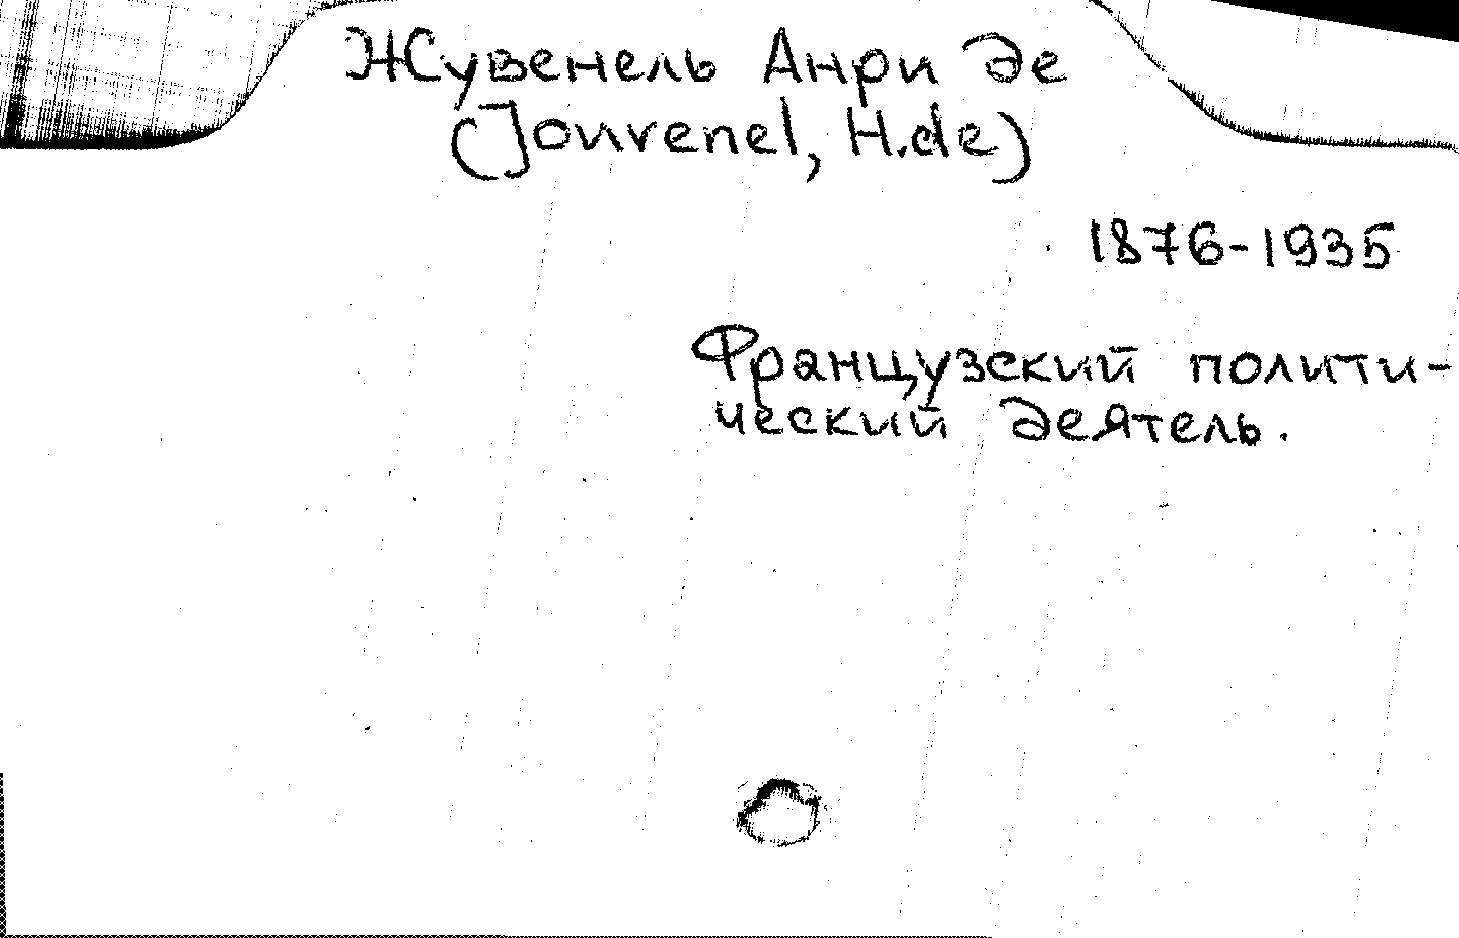 Жувенель Анри де
(Jouvenel, H.de)
1876-1935
Французский полити-
ческий деятель.